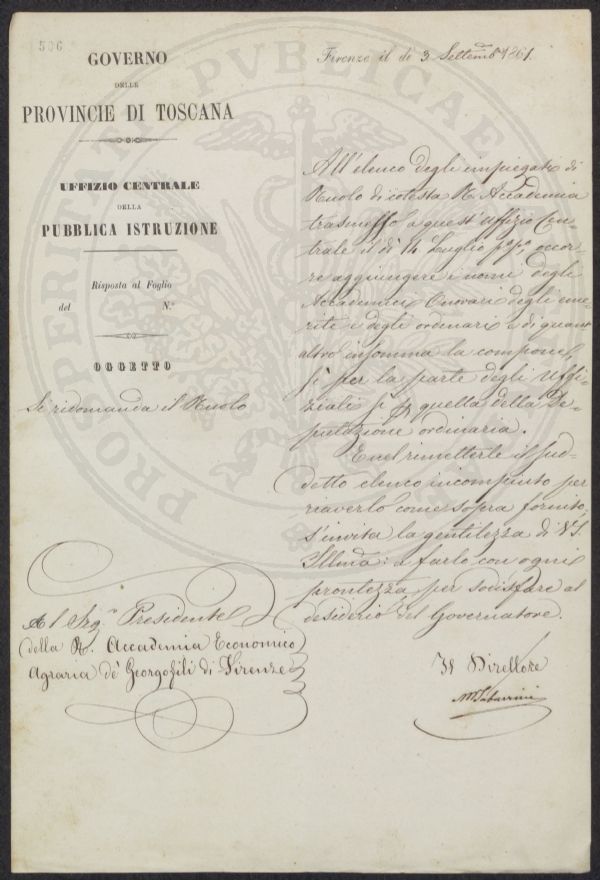 506
GOVERNO
DELLE
PROVINCIE DI TOSCANA
UFFIZIO CENTRALE
DELLA
PUBBLICA ISTRUZIONE
Risposta al Foglio
del N.º
OGGETTO
Si ridomanda il Ruolo
Al Sigʳ Presidente
della R. Accademia Economico
Agraria de' Georgofili di Firenze
Firenze il dì 3 Settembʳ 1861.
All'elenco degli impiegati di
Ruolo di cotesta R. Accademia
trasmesso a quest'uffizio Cen=
trale il dì 14 Luglio pº pº, occor
re aggiungere i nomi degli
Accademici Onorari degli eme
riti e degli ordinari e di quant'
altro insomma la compone,
sì per la parte degli Uffi=
ziali sì p quella della De=
putazione ordinaria.
E nel rimetterle il sud=
detto elenco incompiuto per
riaverlo come sopra fornito,
s'invita la gentilezza di V. S.
Illma: a farlo con ogni
prontezza per sodisfare al
desiderio del Governatore.
Il Direttore
M Tabarrini
PROSPERITATI PUBLICAE